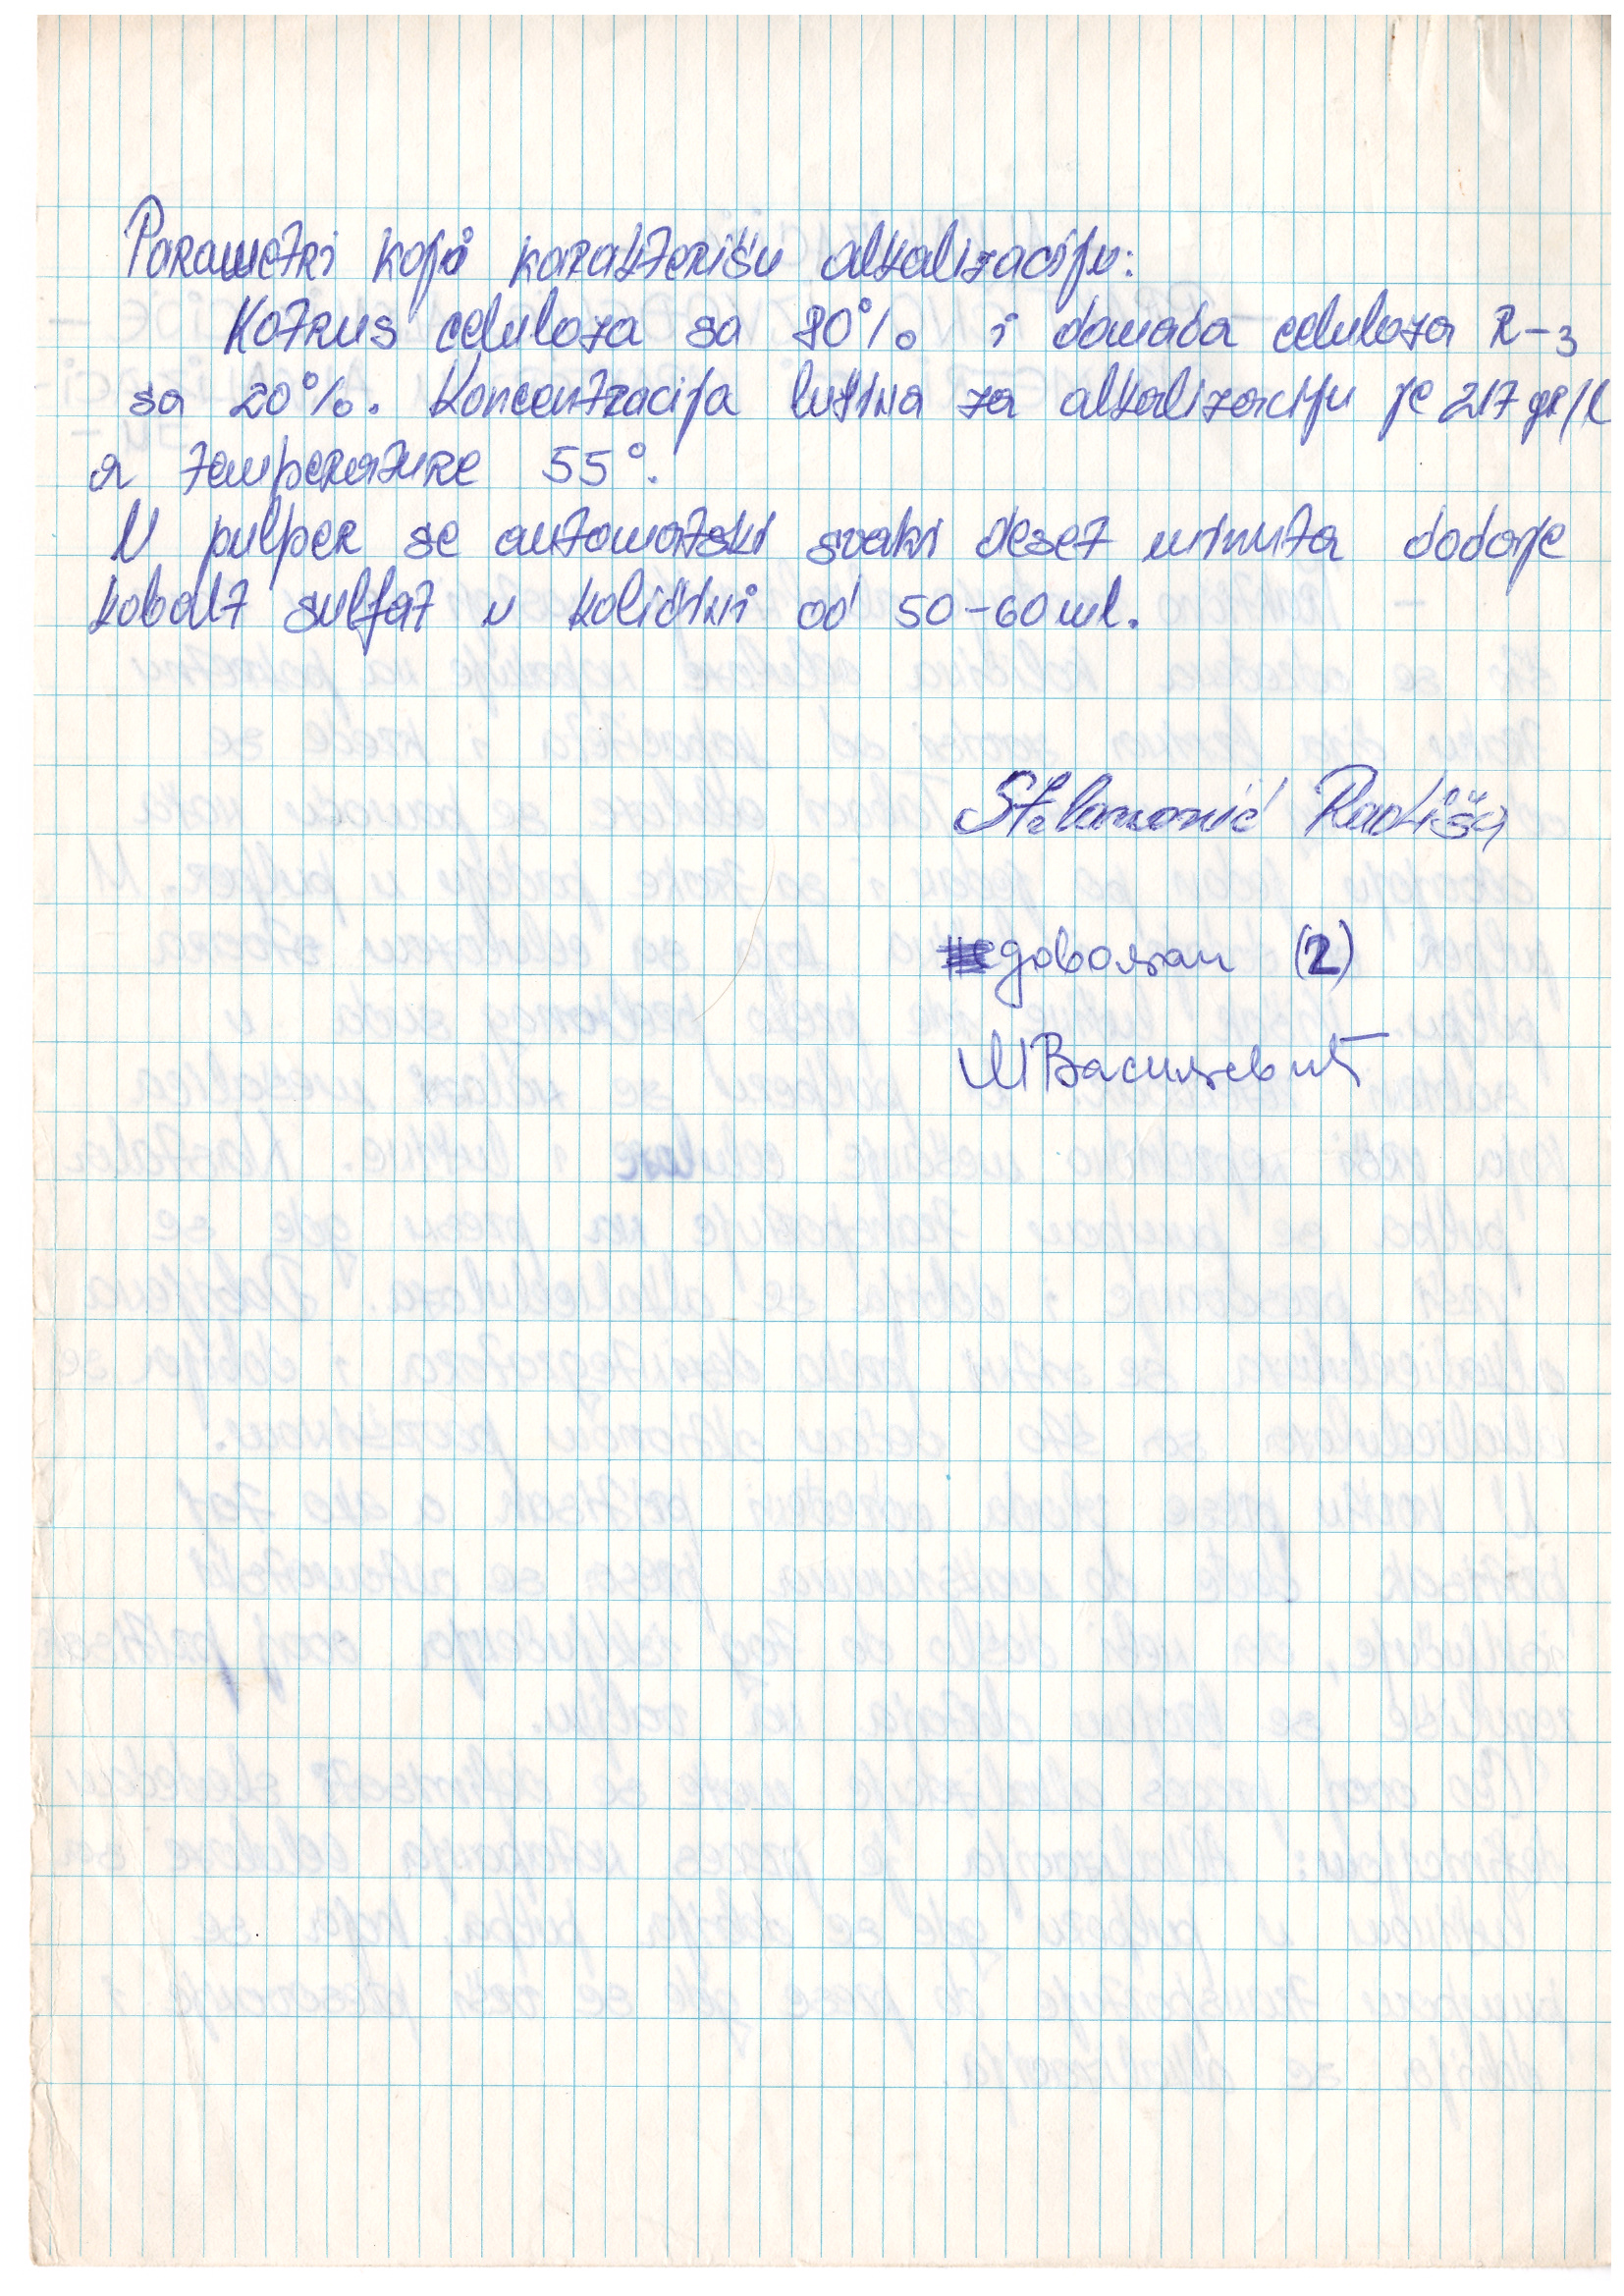 Parametri koji karakterišu alkalizaciju:
Kotrus celuloza sa 80% i domaća celuloza R-3
sa 20%. Koncentracija lužina za alkalizaciju je 217 gr/l
a temperature 55°.
U pulper se automatski svaki deset minuta dodaje
kobalt sulfat u količini od 50-60 ml.
Radiša
довољан (2)
МВасиљевић